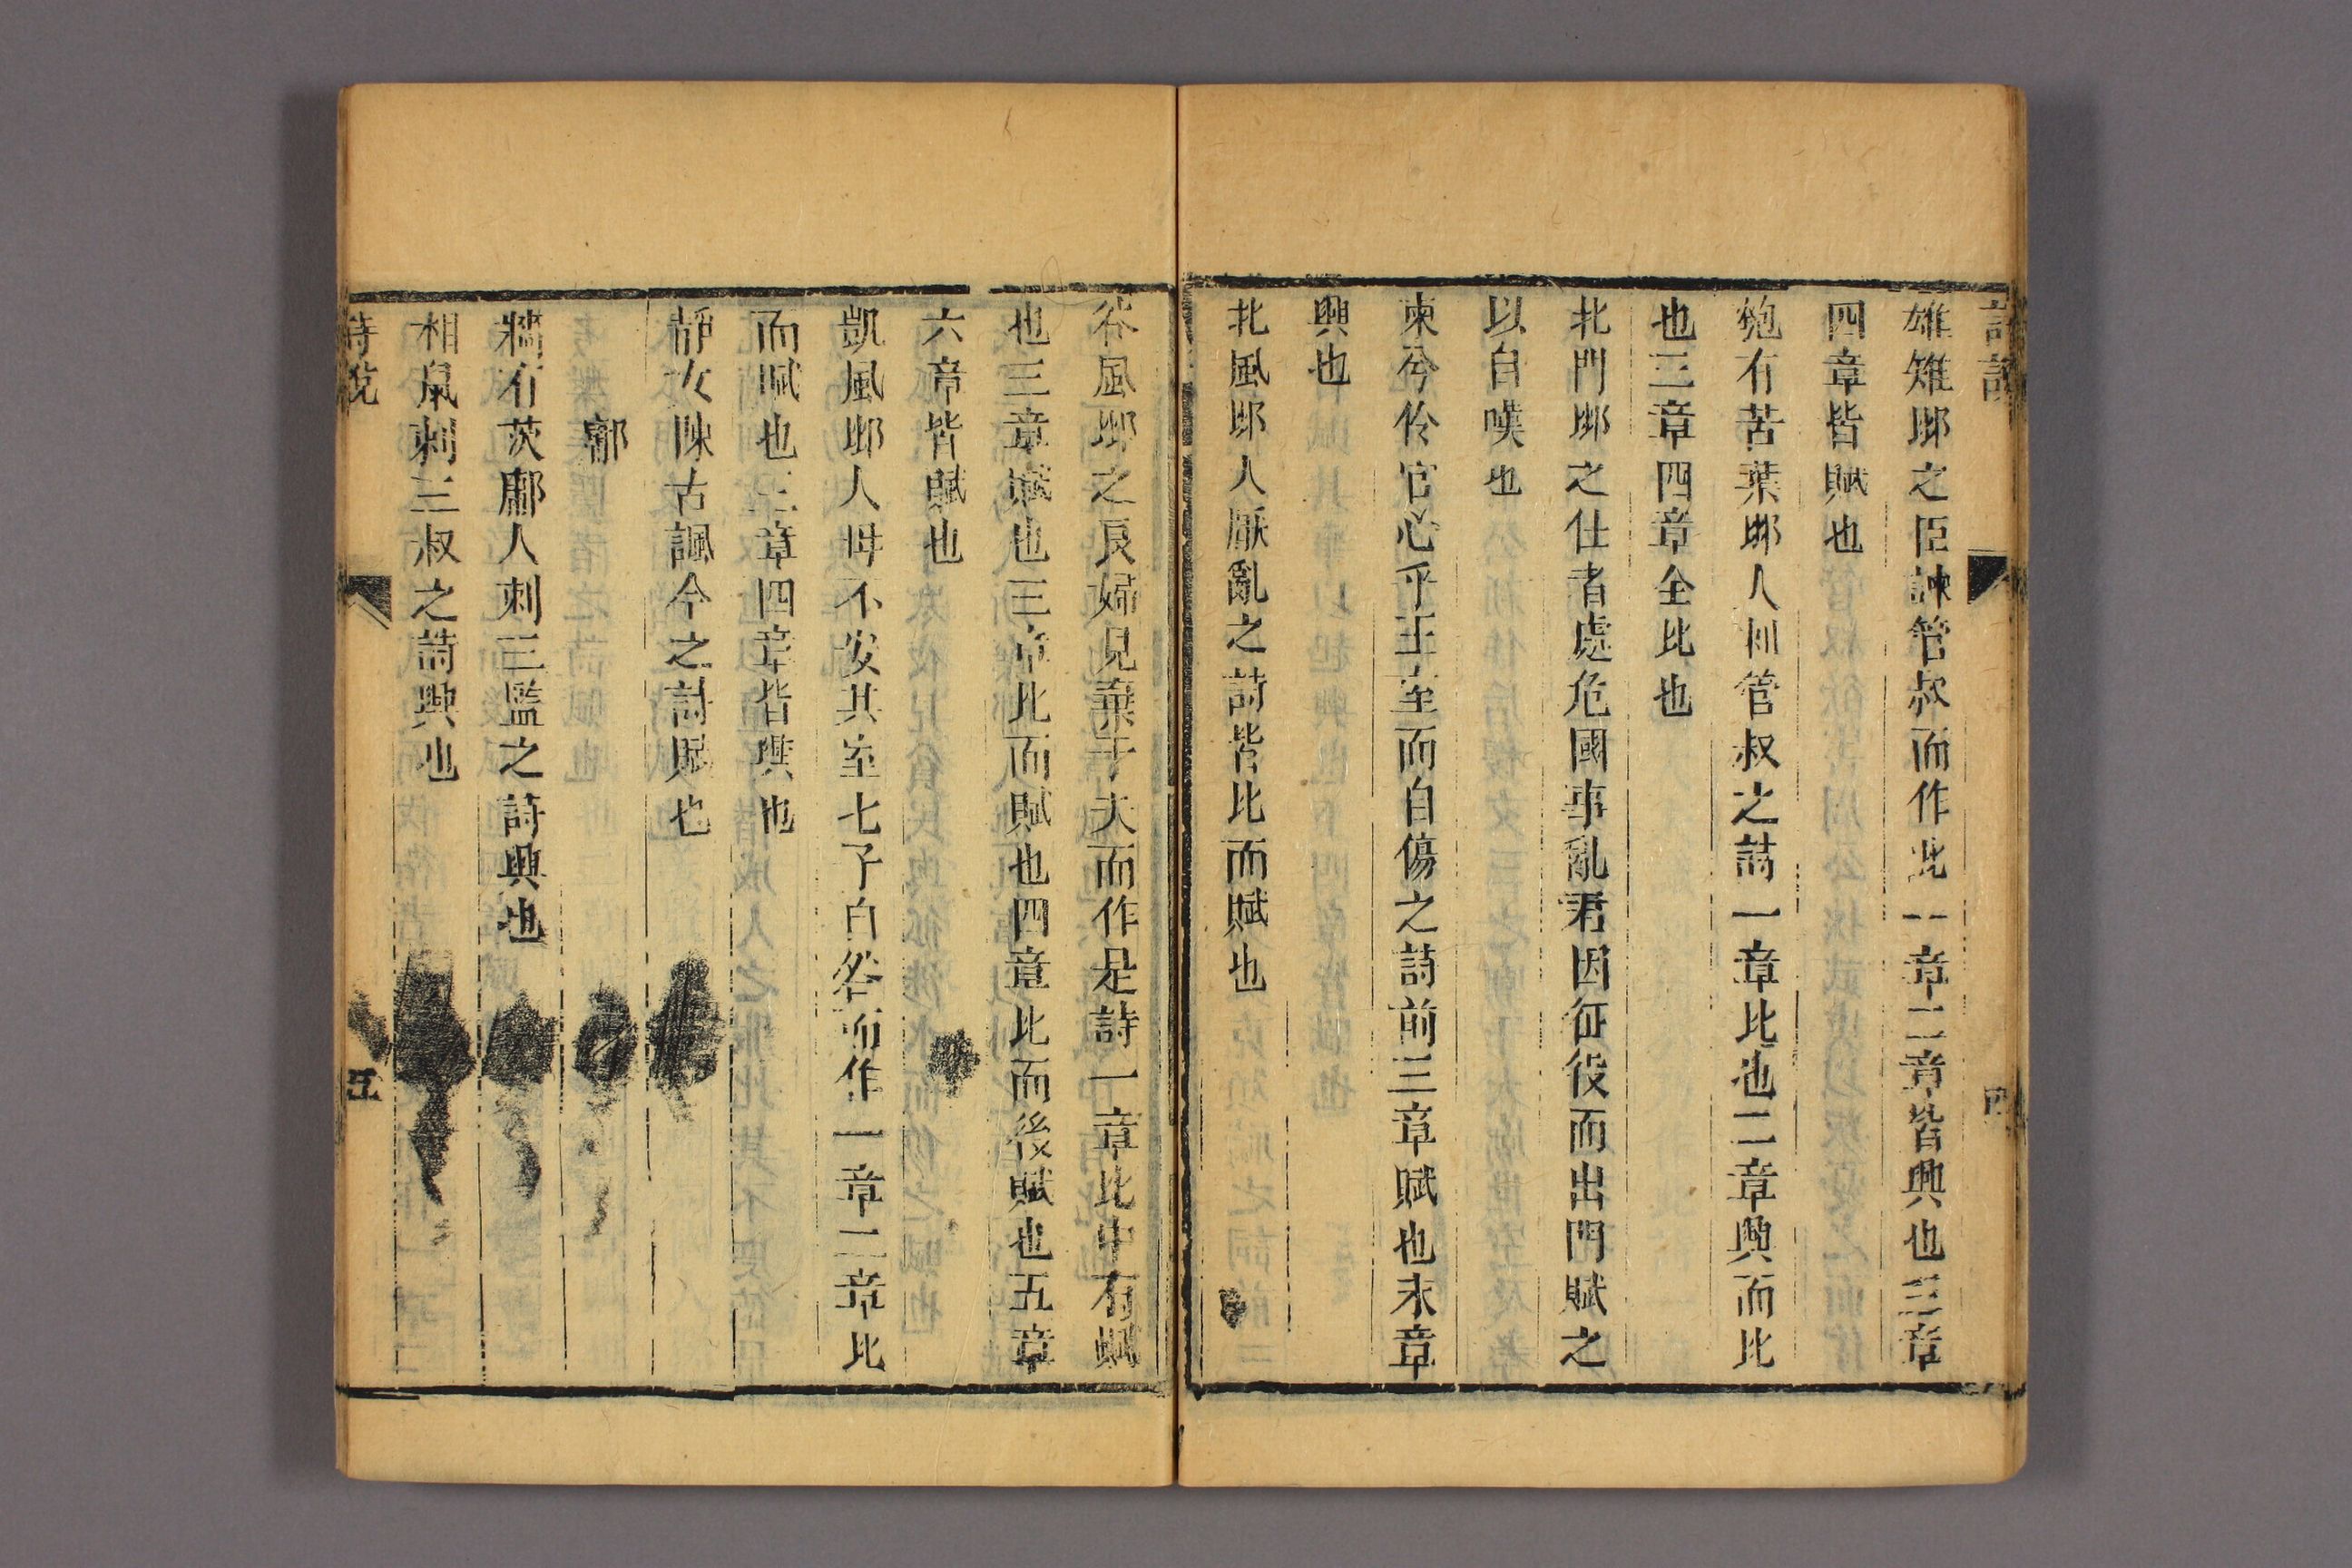 詩說
四
雄雉邶之臣諫管叔而作此一章二章皆興也三章
四章皆賦也
匏有苦葉邶人刺管叔之詩一章比也二章興而比
也三章四章全比也
北門邶之仕者處危國事亂君因征役而出門賦之
以自嘆也
柬兮伶官心乎王室而自傷之詩前三章賦也末章
興也
北風邶人厭亂之詩皆比而賦也
谷風邶之良婦見棄于夫而作是詩一章比中有賦
也二章賦也三章比而賦也四章比而後賦也五章
六章皆賦也
凱風邶人母不安其室七子自咎而作一章二章比
而賦也三章四章皆興也
靜女陳古諷今之詩賦也
鄘
牆有茨鄘人刺三監之詩興也
相鼠刺三叔之詩興也
詩說
五